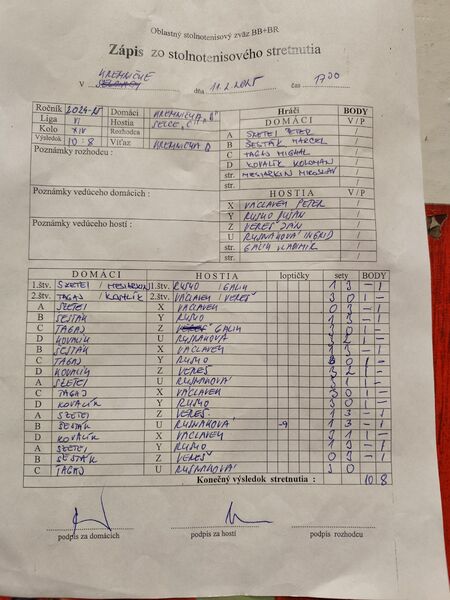 Oblastný stolnotenisový zväz BB+BR
Zápis zo stolnotenisového stretnutia
V KREMNIČKE dňa 11.2.2025 čas 17 00
Ročník 2024-25 Domáci KREMNIČKA "B"
Liga VI Hostia SELCE "C"
Kolo XIV Rozhodca
Výsledok 10-8 Víťaz KREMNIČKA B
Poznámky rozhodcu :
Poznámky vedúceho domácich :
Poznámky vedúceho hostí :
Hráči BODY
DOMÁCI V/P
A SZETEI PETER /
B ŠESTÁK MARCEL /
C TAGAJ MICHAL /
D KOVALÍK KOLOMAN /
str. MESIARKIN MIROSLAV /
HOSTIA V/P
X VACLAVEK PETER /
Y RUSKO DUŠAN /
Z VEREŠ JÁN /
U RUSNÁKOVÁ INGRID /
str. GALIK VLADIMÍR /
str. /
DOMÁCI HOSTIA loptičky sety BODY
1.štv. SZETEI / MESIARKIN 1.štv. RUSKO / GALIK 1 3 - 1
2.štv. TAGAJ / KOVALÍK 2.štv. VACLAVEK / VEREŠ 3 0 1 -
A SZETEI X VACLAVEK 0 3 - 1
B ŠESTÁK Y RUSKO 1 3 - 1
C TAGAJ Z GALIK 3 0 1 -
D KOVALÍK U RUSNÁKOVÁ 3 2 1 -
B ŠESTÁK X VACLAVEK 1 3 - 1
C TAGAJ Y RUSKO 3 0 1 -
D KOVALÍK Z VEREŠ 3 2 1 -
A SZETEI U RUSNAKOVÁ 3 1 1 -
C TAGAJ X VACLAVEK 3 0 1 -
D KOVALÍK Y RUSKO 3 0 1 -
A SZETEI Z VEREŠ 1 3 - 1
B ŠESTÁK U RUSNÁKOVÁ -9 1 3 - 1
D KOVALÍK X VACLAVEK 3 1 1 -
A SZETEI Y RUSKO 1 3 - 1
B ŠESTÁK Z VEREŠ 0 3 - 1
C TAGAJ U RUSNÁKOVÁ 3 0
Konečný výsledok stretnutia : 10 8
podpis za domácich podpis za hostí podpis rozhodcu